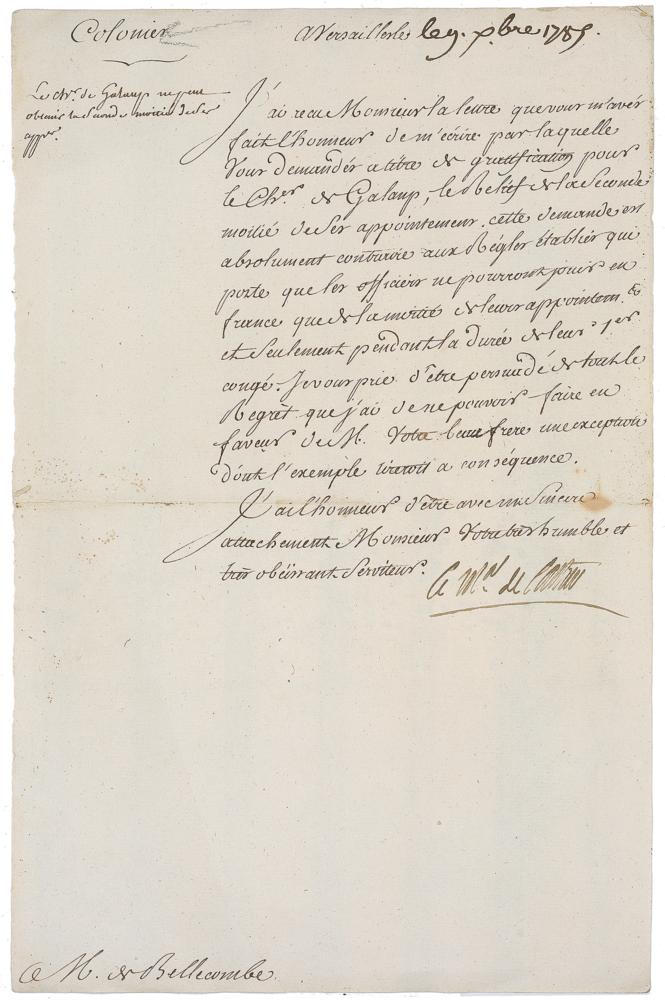 Colonies
A Versailles le 9. Xbre 1785.
Le chr. de Galaup ne peut
obtenir la seconde moitié de ses
appts.
J'ai reçu Monsieur la lettre que vous m'avés
fait l'honneur de m'écrire par laquelle
Vous demandés a titre de gratification pour
le Cher. de Galaup, le Relief de la Seconde
moitié de ses appointemens. cette demande est
absolument contraire aux Règles établies qui
porte que les officiers ne pourront jouir en
france que de la moitié de leurs appointem.ts
et seulement pendant la durée de leurs 1ers
congé. Je vous prie d'être persuadé de tout le
Regrèt que j'ai de ne pouvoir faire en
faveur de M. Votre beau frere une exception
dont l'exemple tireroit a conséquence.
J'ai l'honneur d'être avec un sincere
attachement Monsieur Votre très humble et
très obéissant Serviteur.
le Mal. de Castries
M. de Bellecombe.